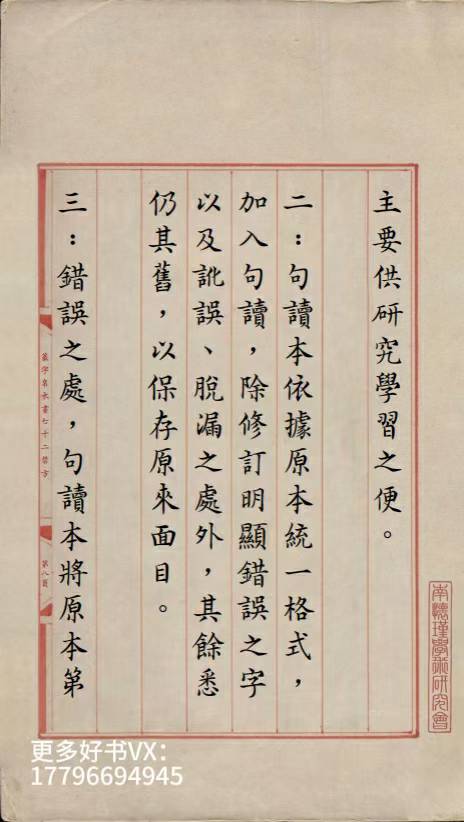 主要供研究學習之便。
二：句讀本依據原本統一格式，
加入句讀，除修訂明顯錯誤之字
以及訛誤、脫漏之處外，其餘悉
仍其舊，以保存原來面目。
三：錯誤之處，句讀本將原本第
第八頁
南懷瑾學術研究會
更多好书VX：
17796694945